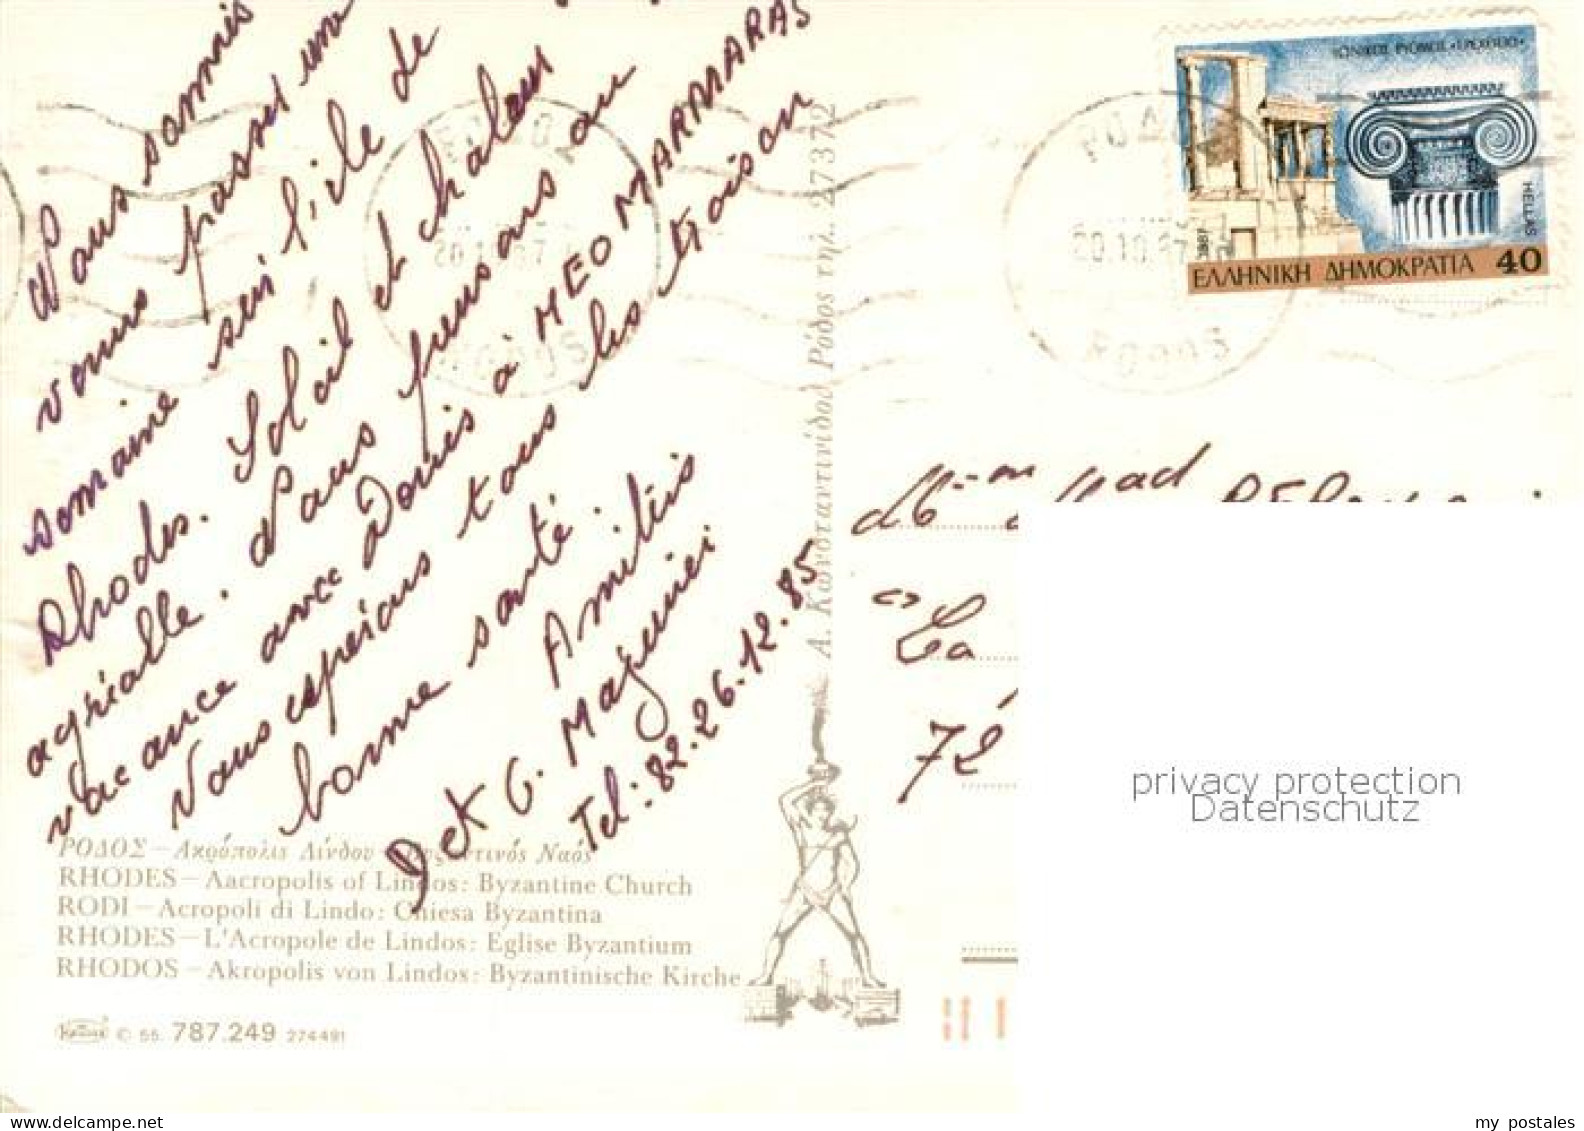 Nous sommes
venus passer une
semaine sur l'ile de
Rhodes. Soleil et chaleur
agréable. Nous pensons au
vacance avec Denis à NEO MARMARAS
Nous esperions tous les trois en
bonne santé.
Amitiés
D et G. Magunei
Tel: 82.26.12.85
ΡΟΔΟΣ — Ακρόπολις Λίνδου Βυζαντινός Ναός
RHODES — Aacropolis of Lindos: Byzantine Church
RODI — Acropoli di Lindo: Chiesa Byzantina
RHODES — L'Acropole de Lindos: Eglise Byzantium
RHODOS — Akropolis von Lindos: Byzantinische Kirche
© 55. 787.249 274491
Α. Κωνσταντινίδου Ρόδος τηλ. 27372
ΙΩΝΙΚΟΣ ΡΥΘΜΟΣ «ΕΡΕΧΘΕΙΟ»
HELLAS
1987
ΕΛΛΗΝΙΚΗ ΔΗΜΟΚΡΑΤΙΑ 40
ΡΟΔΟΣ
20.10.87
RODOS
ΡΟΔΟΣ
20.10.87
RODOS
La
72
privacy protection
Datenschutz
www.delcampe.net
my postales